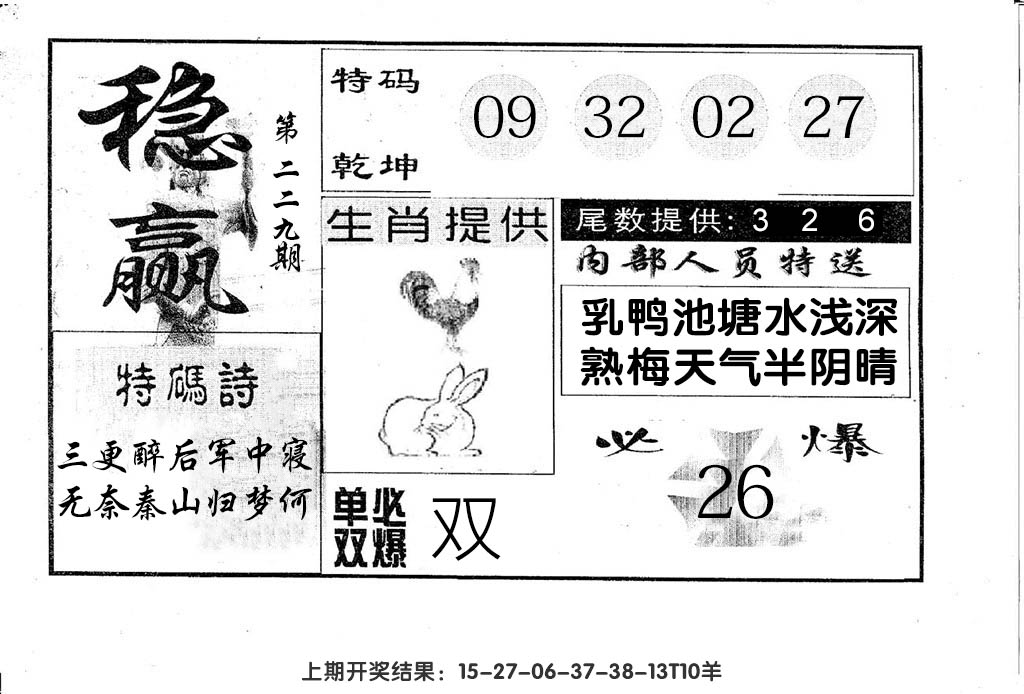 稳赢
第二二九期
特码
乾坤
09 32 02 27
生肖提供
尾数提供: 3 2 6
内部人员特送
乳鸭池塘水浅深
熟梅天气半阴晴
特碼詩
三更醉后军中寝
无奈秦山归梦何
必爆
26
单必
双爆
双
上期开奖结果：15-27-06-37-38-13T10羊